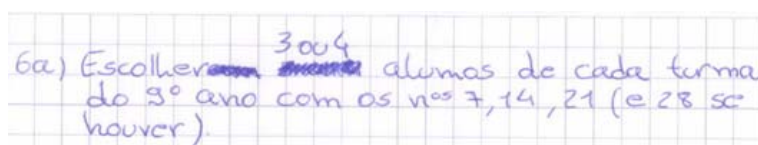 6a) Escolher 3 ou 4 alumos de cada turma
do 9º ano com os nos 7, 14, 21 (e 28 se
houver).